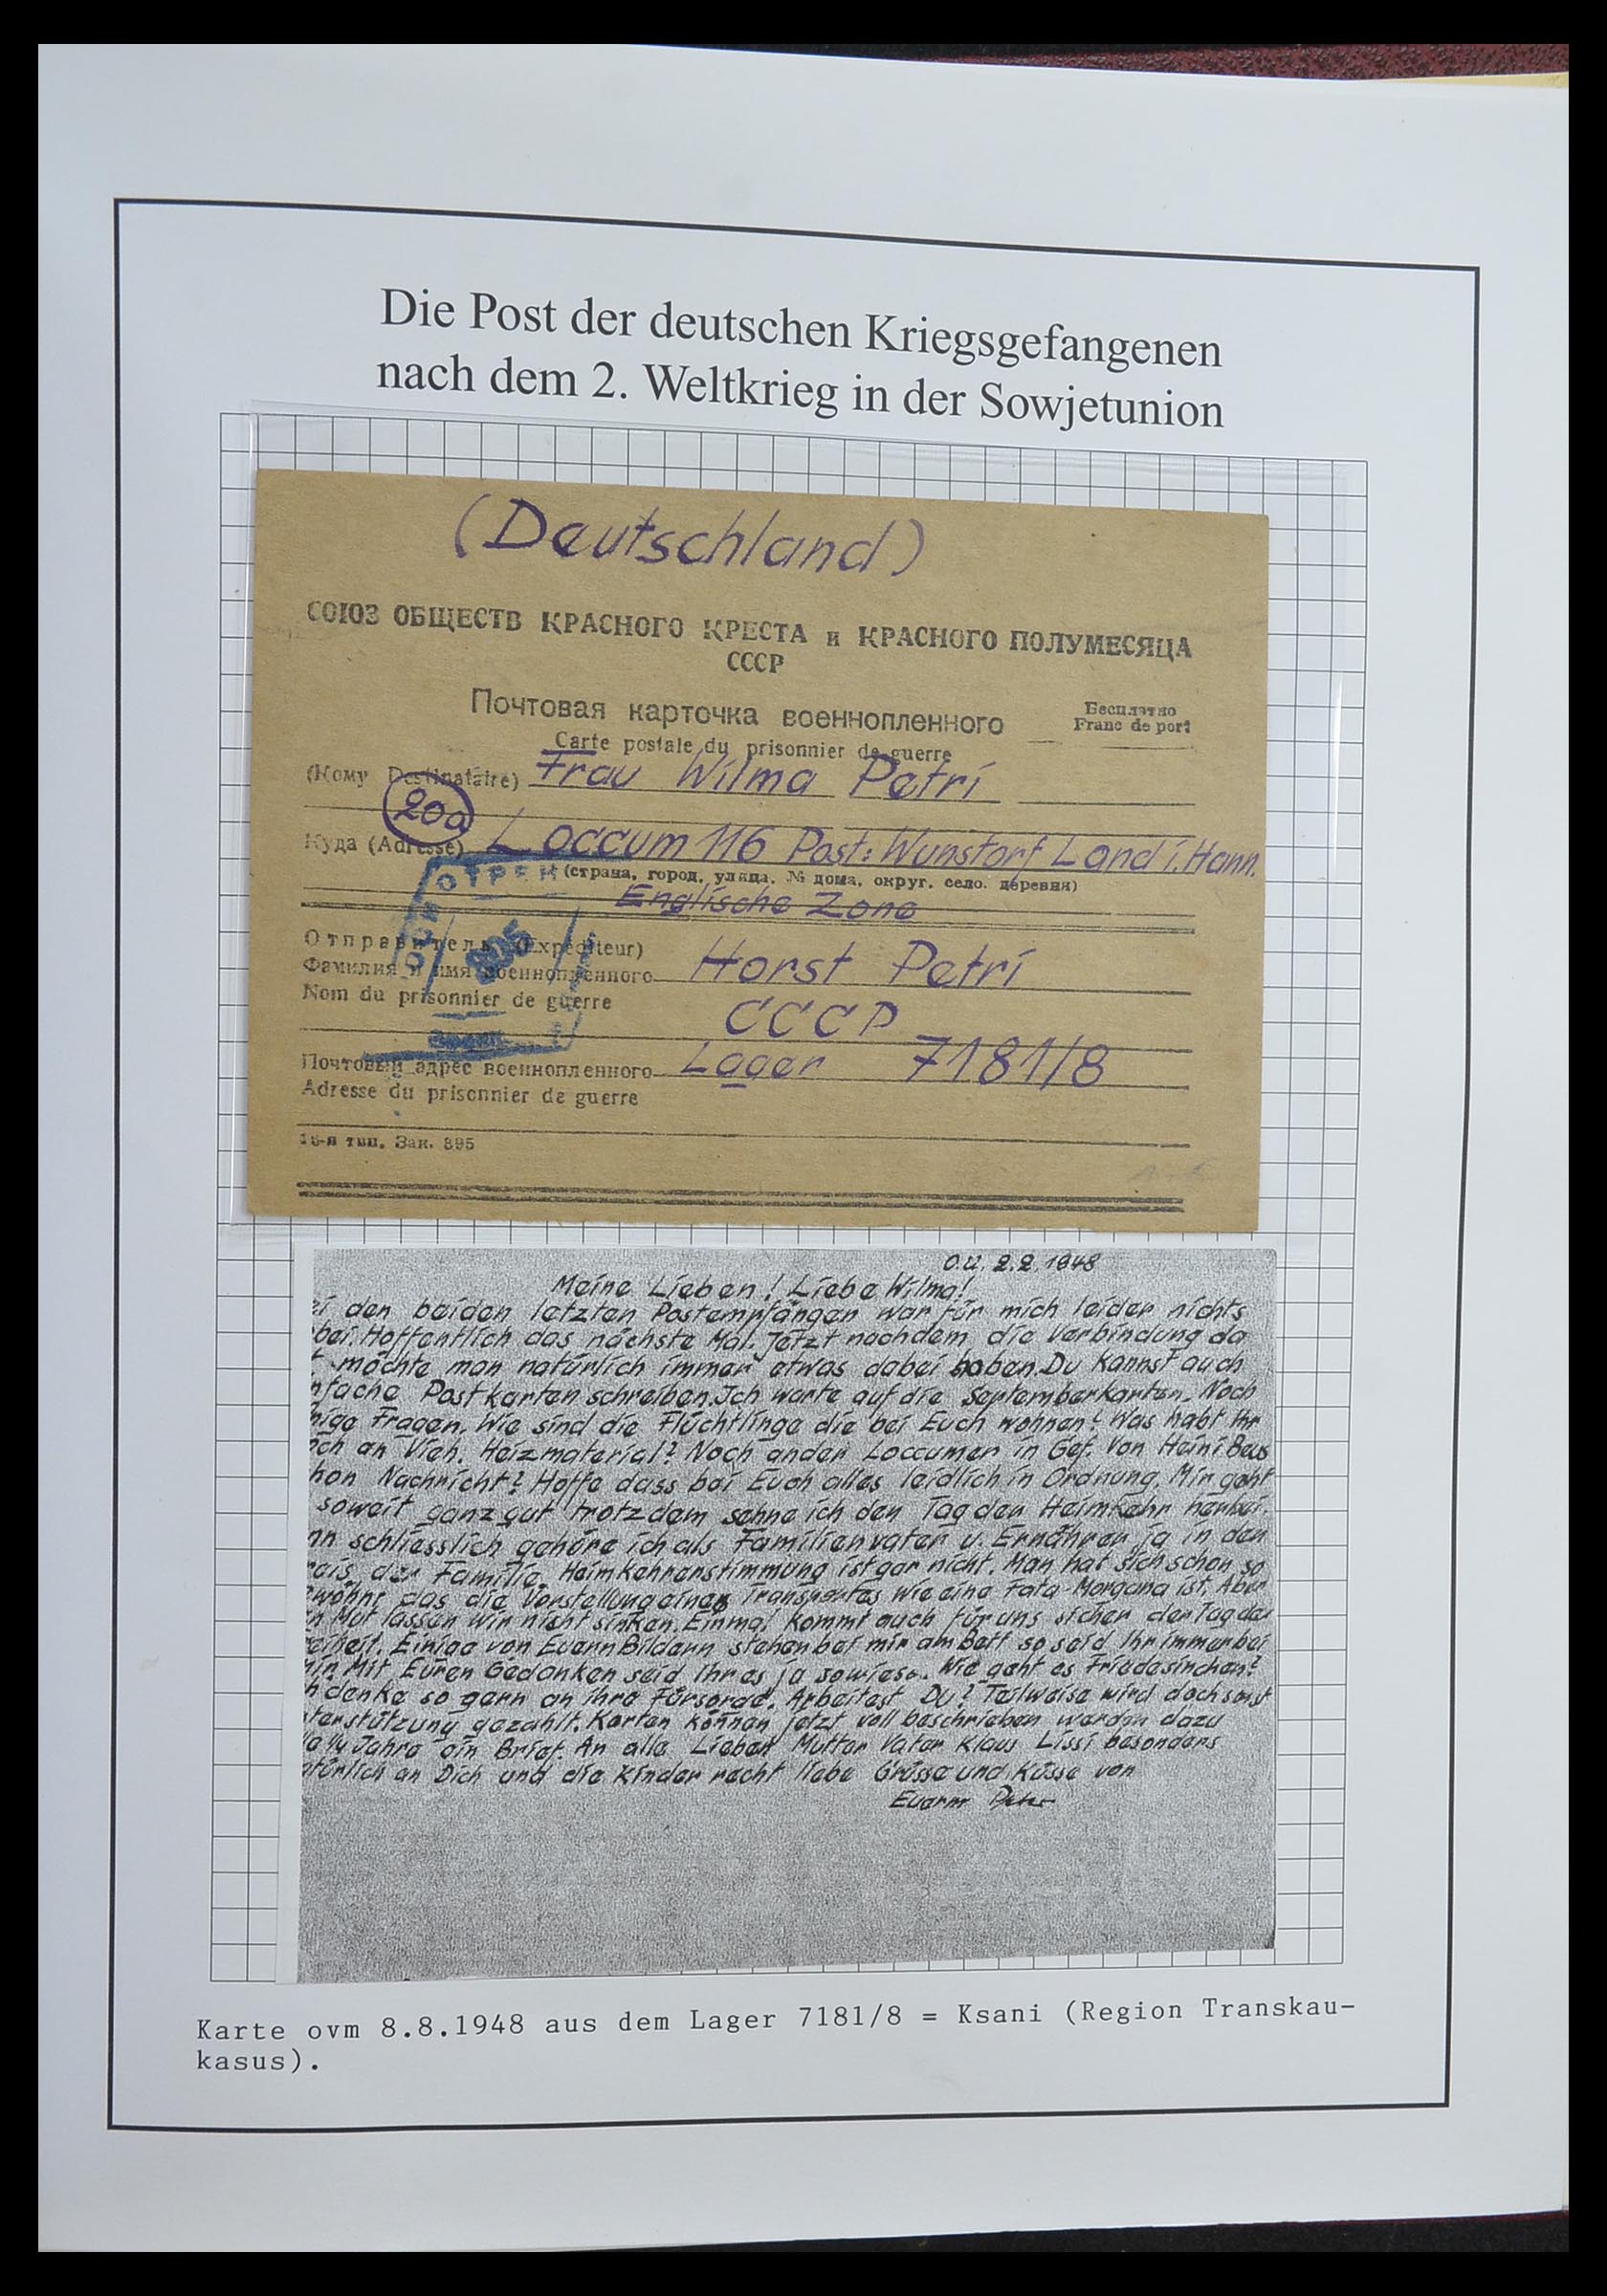 Die Post der deutschen Kriegsgefangenen
nach dem 2. Weltkrieg in der Sowjetunion
(Deutschland)
СОЮЗ ОБЩЕСТВ КРАСНОГО КРЕСТА и КРАСНОГО ПОЛУМЕСЯЦА
СССР
Почтовая карточка военнопленного
Бесплатно
Franc de port
Carte postale du prisonnier de guerre
(Кому Destinataire) Frau Wilma Petri
20a
Куда (Adresse) Loccum 116 Post: Wunstorf Land i. Hann.
(страна, город, улица, № дома, округ, село, деревня)
Englische Zone
Отправитель (Expéditeur)
Фамилия и имя военнопленного Horst Petri
Nom du prisonnier de guerre
СССР
Почтовый адрес военнопленного Lager 7181/8
Adresse du prisonnier de guerre
16-я тип. Зак. 895
O.U. 2.2.1948
Meine Lieben! Liebe Wilma!
ei den beiden letzten Postempfängen war für mich leider nichts
bei. Hoffentlich das nächste Mal. Jetzt nachdem die Verbindung da
t möchte man natürlich immer etwas dabei haben. Du kannst auch
nfache Postkarten schreiben. Ich warte auf die Septemberkarten. Noch
nige Fragen. Wie sind die Flüchtlinge die bei Euch wohnen? Was habt Ihr
och an Vieh. Heizmaterial? Noch ander Loccumer in Gef. Von Heini
hon Nachricht? Hoffe dass bei Euch alles leidlich in Ordnung. Mir geht
soweit ganz gut trotzdem sehne ich den Tag der Heimkehr herbei.
nn schliesslich gehöre ich als Familienvater u. Ernährer ja in den
reis der Familie. Heimkehrerstimmung ist gar nicht. Man hat sich schon so
ewöhnt das die Vorstellung eines Transportes wie eine Fata-Morgana ist. Aber
n Mut lassen wir nicht sinken. Einmal kommt auch für uns sicher der Tag der
reiheit. Einige von Euern Bildern stehen bei mir am Bett so seid Ihr immer bei
mir. Mit Euren Gedanken seid Ihr es ja sowieso. Wie geht es Friedesinchen?
h denke so gern an ihre Fürsorge. Arbeitest Du? Teilweise wird doch sonst
terstützung gezahlt. Karten können jetzt voll beschrieben werden dazu
1/4 Jahre ein Brief. An alle Lieben Mutter Vater Klaus Lissi besonders
atürlich an Dich und die Kinder recht liebe Grüsse und Küsse von
Euerm
Karte ovm 8.8.1948 aus dem Lager 7181/8 = Ksani (Region Transkau-
kasus).